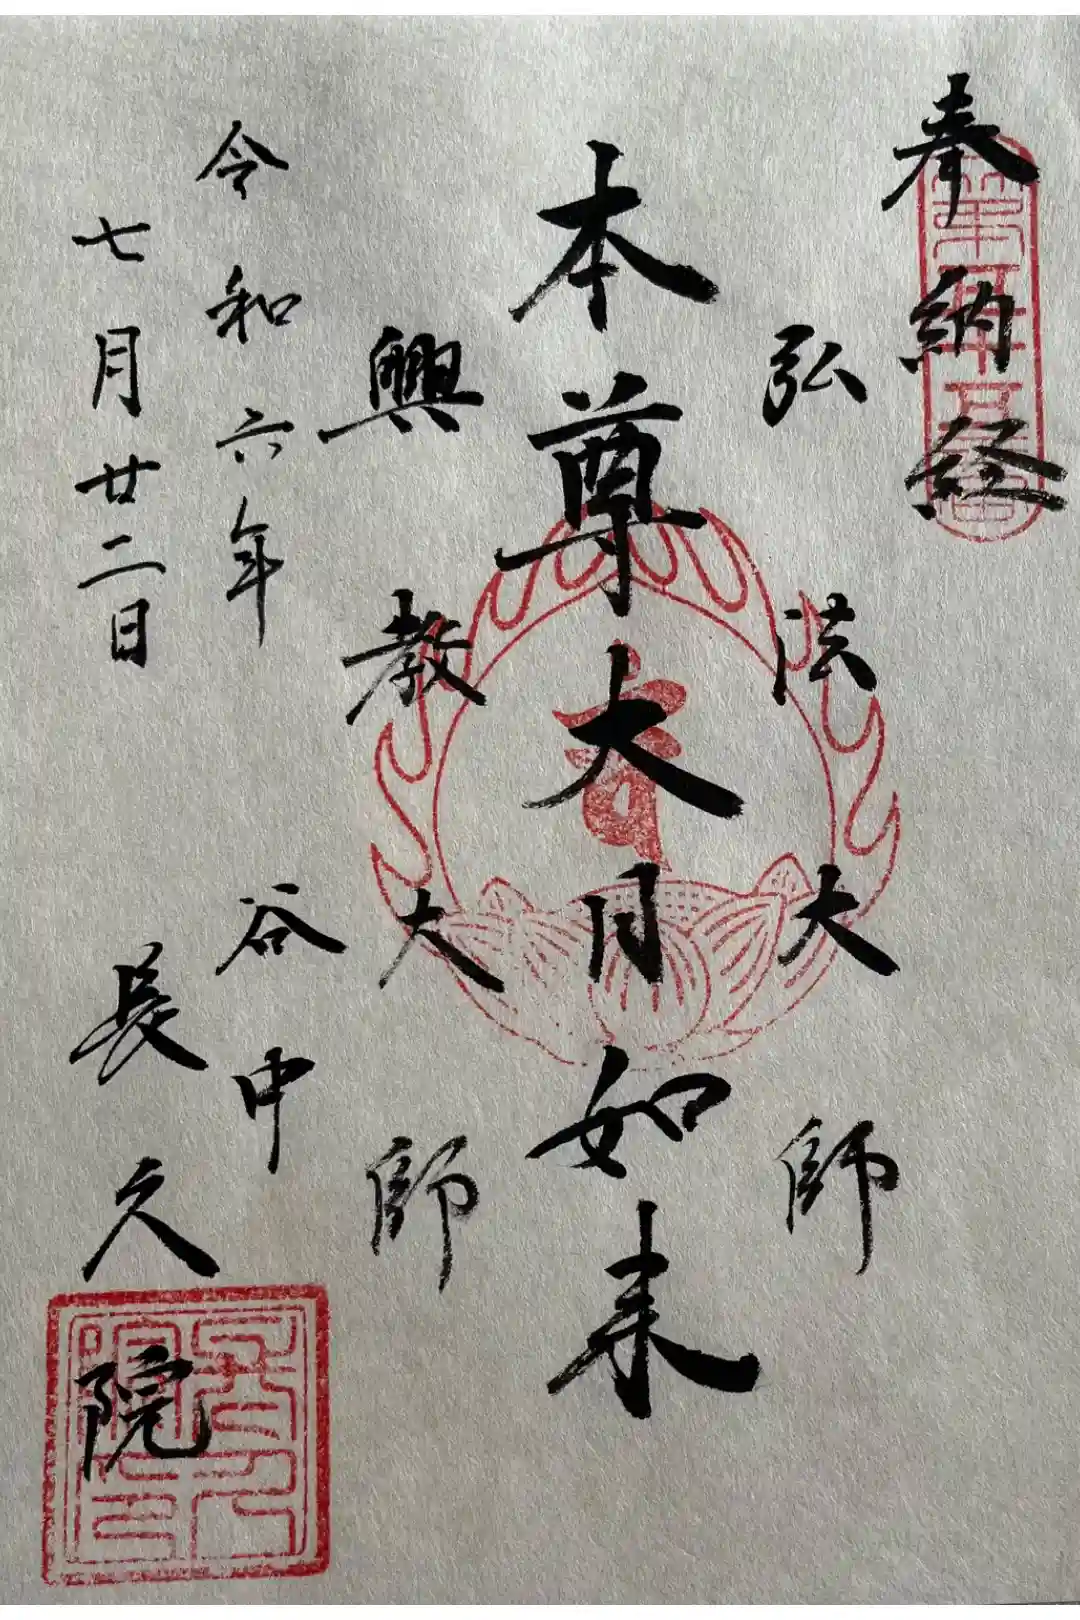 奉納経
弘法大師
本尊大日如来
興教大師
令和六年
七月廿二日
谷中
長久院